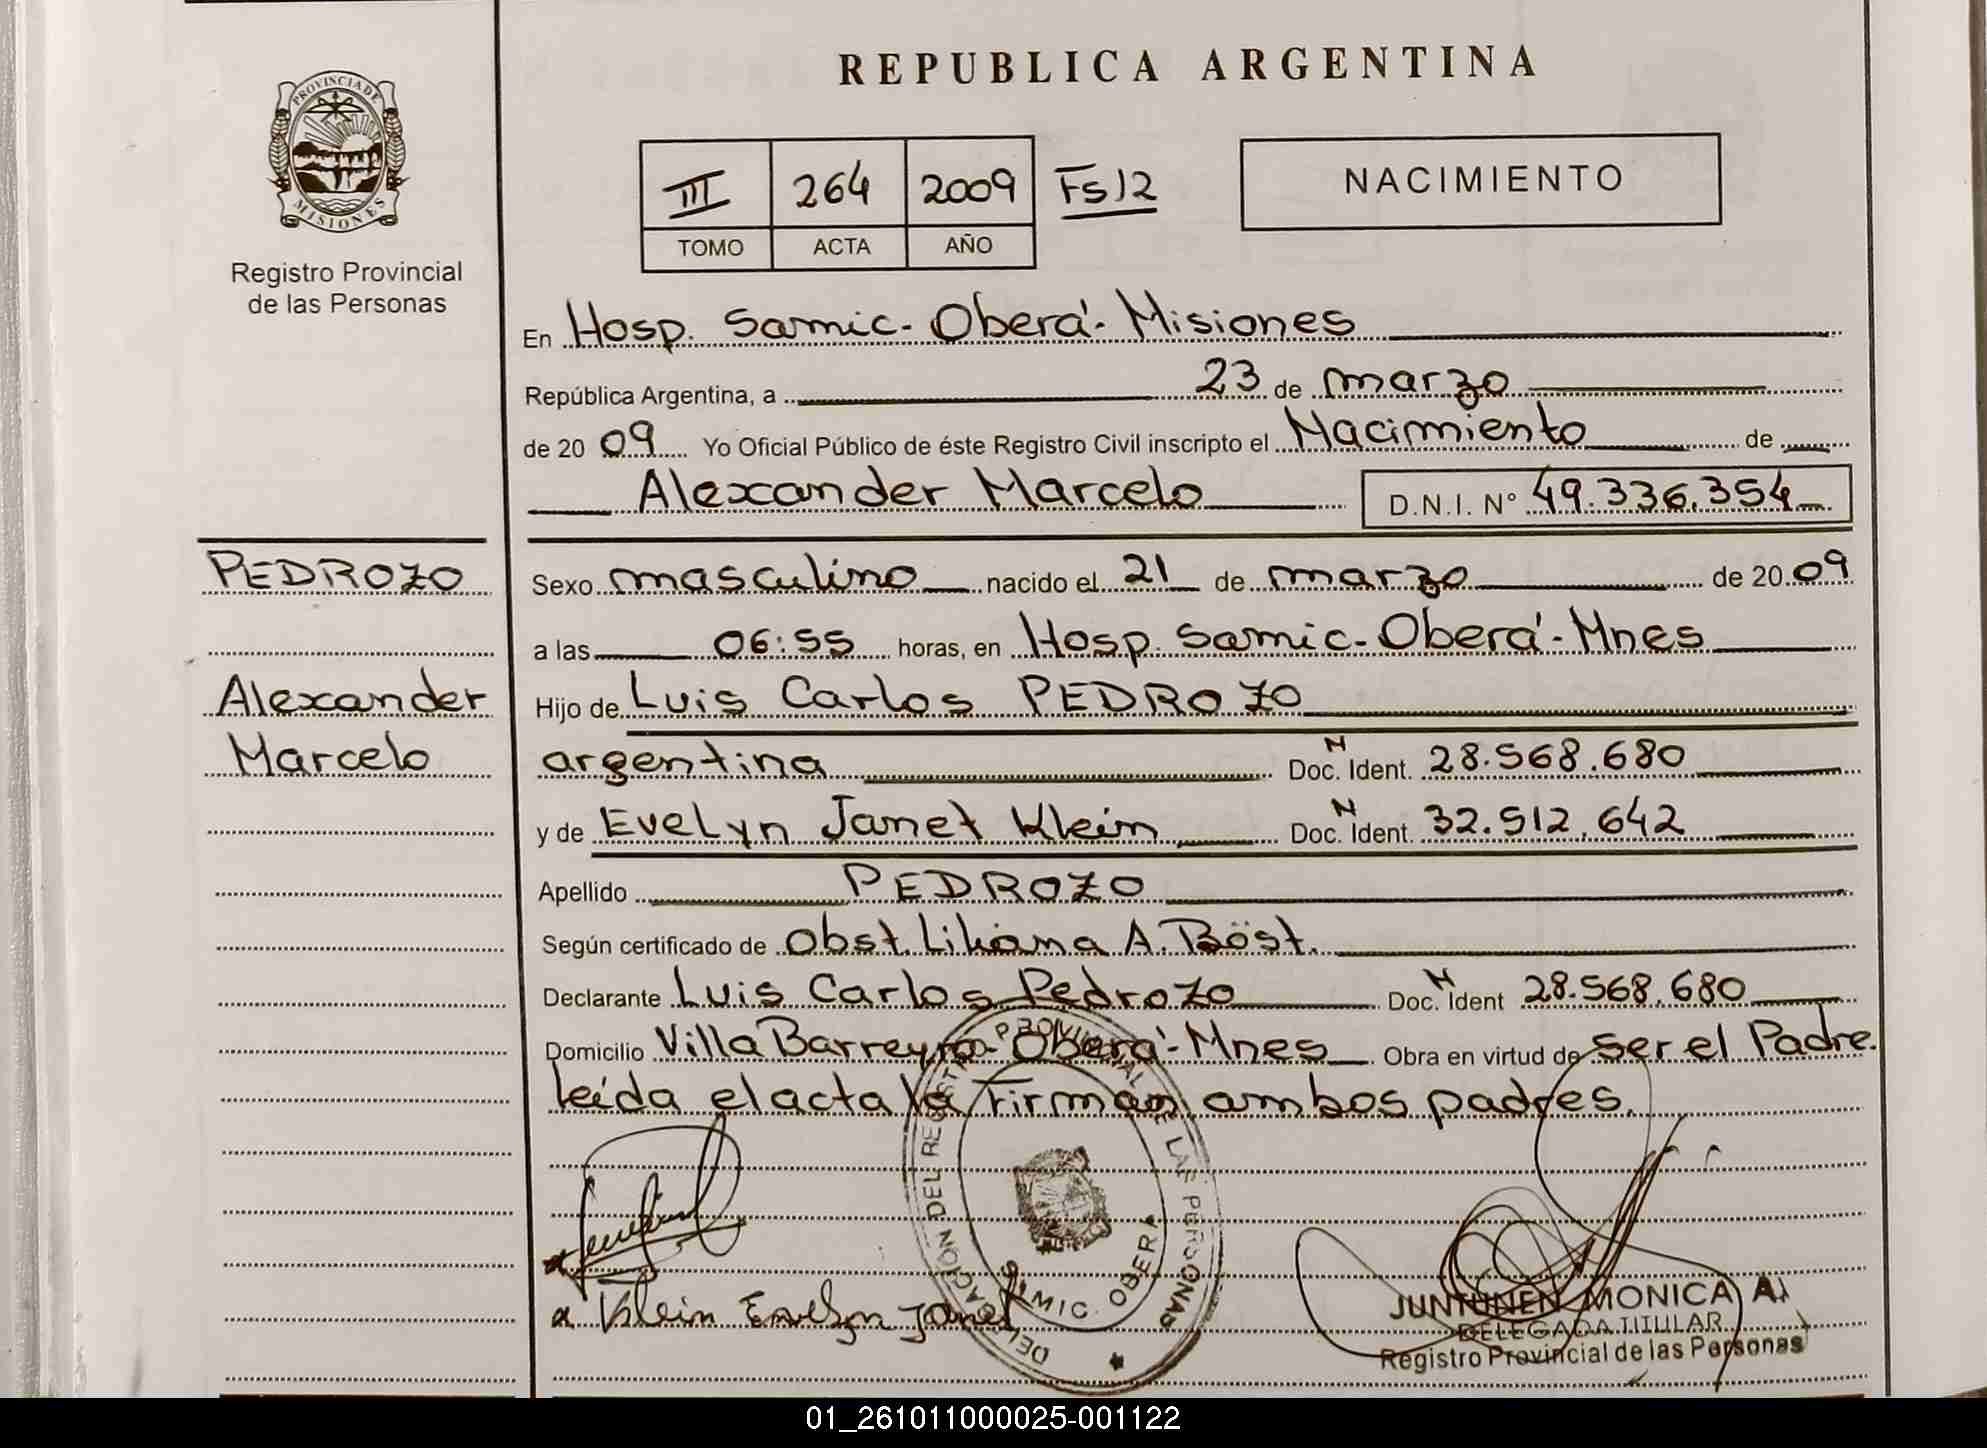 REPUBLICA ARGENTINA
PROVINCIA DE
MISIONES
Registro Provincial
de las Personas
III 264 2009 Fs 12
TOMO ACTA AÑO
NACIMIENTO
En Hosp. Samic - Oberá - Misiones
República Argentina, a 23 de marzo
de 20 09 Yo Oficial Público de éste Registro Civil inscripto el Nacimiento de
Alexander Marcelo D.N.I. N° 49.336.354
PEDROZO
Alexander
Marcelo
Sexo masculino nacido el 21 de marzo de 20 09
a las 06:55 horas, en Hosp. Samic - Oberá - Mnes
Hijo de Luis Carlos PEDROZO
argentina Doc. N Ident. 28.568.680
y de Evelyn Janet Klein Doc. N Ident. 32.512.642
Apellido PEDROZO
Según certificado de Obst. Liliana A. Böst.
Declarante Luis Carlos Pedrozo Doc. N Ident 28.568.680
Domicilio Villa Barreyro - Oberá - Mnes Obra en virtud de ser el Padre.
leída el acta la firman ambos padres.
DELEGACIÓN DEL REGISTRO PROVINCIAL DE LAS PERSONAS
SAMIC. OBERA
Klein Evelyn Janet
JUNTUNEN MONICA A.
DELEGADA TITULAR
Registro Provincial de las Personas
01_261011000025-001122